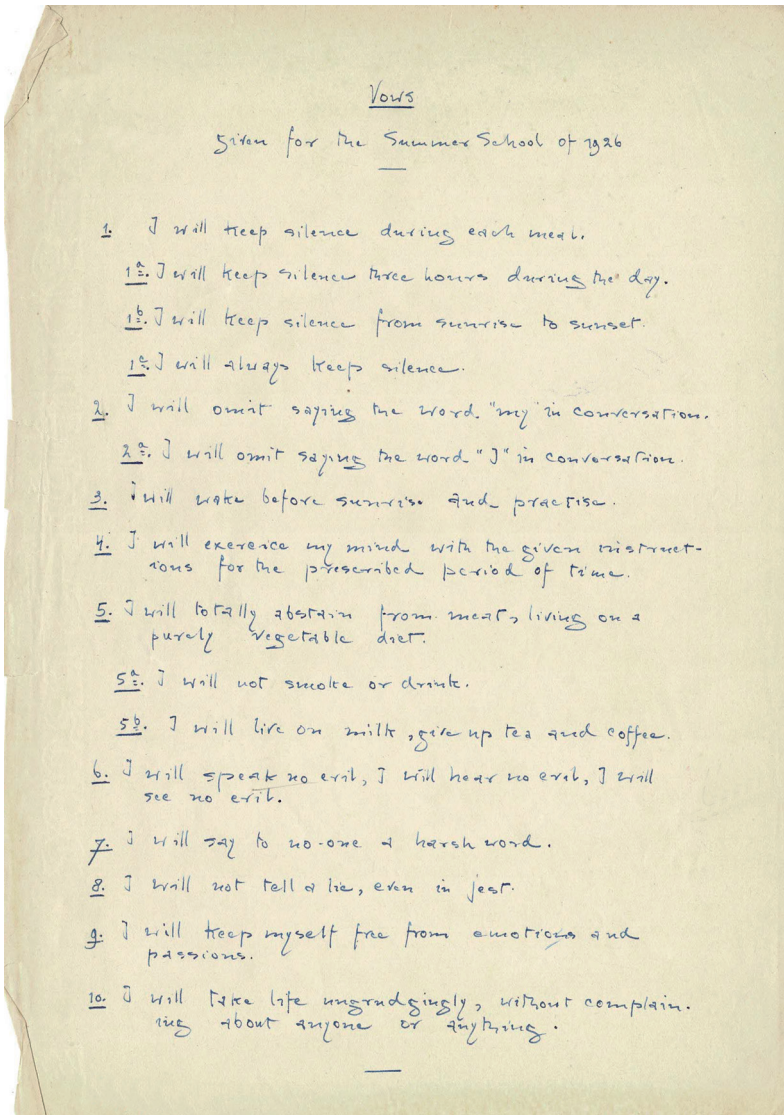 Vows
given for the Summer School of 1926
1. I will keep silence during each meal.
1a. I will keep silence three hours during the day.
1b. I will keep silence from sunrise to sunset.
1c. I will always keep silence.
2. I will omit saying the word "my" in conversation.
2a. I will omit saying the word "I" in conversation.
3. I will wake before sunrise and practise.
4. I will exercice my mind with the given instruct-
ions for the prescribed period of time.
5. I will totally abstain from meat, living on a
purely vegetable diet.
5a. I will not smoke or drink.
5b. I will live on milk, give up tea and coffee.
6. I will speak no evil, I will hear no evil, I will
see no evil.
7. I will say to no-one a harsh word.
8. I will not tell a lie, even in jest.
9. I will keep myself free from emotions and
passions.
10. I will take life ungrudgingly, without complain-
ing about anyone or anything.